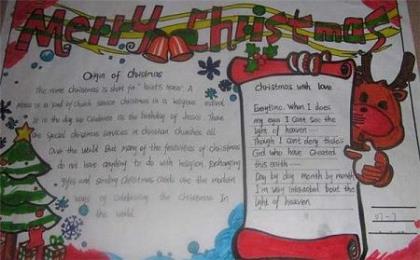 Merry Christmas
Origin of Christmas
The name Christmas is short for "Christ's mass". A
Mass is a kind of Church service Christmas is a religious
It is the day we celebrate as the birthday of Jesus. There
are special Christmas services in Christian churches all
Over the World But many of the festivities of Christmas
do not have anything to do with religion. Exchanging
gifts and sending Christmas Cards are the modern
ways of celebrating the Christmas in
the world
Christmas with love
Everytime When I does
my eyes I can't see the
light of heaven
Though I can't deny that's
God who have created
this earth
Day by day month by month
I'm very interested 'bout the
light of heaven